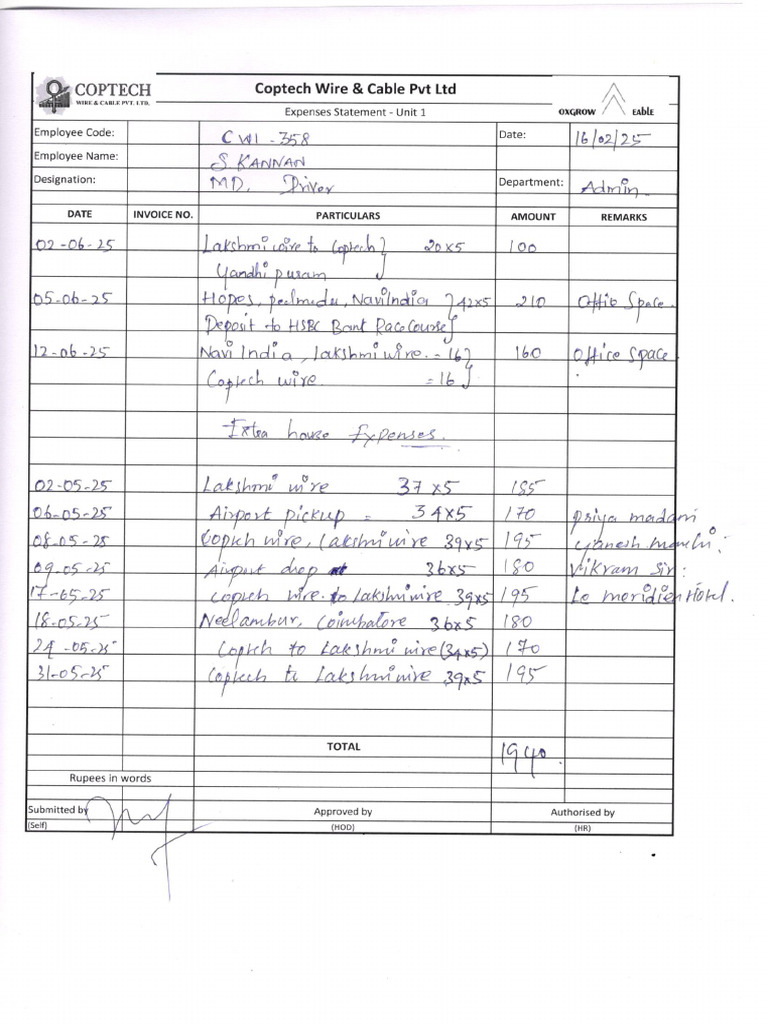 COPTECH
WIRE & CABLE PVT. LTD.
Coptech Wire & Cable Pvt Ltd
Expenses Statement - Unit 1
OXGROW EABLE
Employee Code: CWI - 358 Date: 16/02/25
Employee Name: S KANNAN
Designation: MD. Driver Department: Admin
DATE INVOICE NO. PARTICULARS AMOUNT REMARKS
02-06-25 Lakshmi wire to Coptech } 20x5 100
Gandhipuram
05-06-25 Hopes, peelmedu, NaviIndia } 42x5 210 Offic Space.
Deposit to HSBC Bank RaceCourse
12-06-25 Navi India, lakshmi wire. - 16 } 160 Office Space
Coptech wire. = 16
Extra house Expenses.
02-05-25 Lakshmi wire 37x5 185
06-05-25 Airport pickup = 34x5 170 priya madam
08-05-25 Coptech wire, Lakshmi wire 39x5 195
09-05-25 Airport drop 36x5 180 Vikram Sir:
17-05-25 Coptech wire to Lakshmi wire 39x5 195 Le meridien Hotel.
18-05-25 Neelambur, Coimbatore 36x5 180
24-05-25 Coptech to Lakshmi wire (34x5) 170
31-05-25 Coptech to Lakshmi wire 39x5 195
TOTAL 1940.
Rupees in words
Submitted by Approved by Authorised by
(Self) (HOD) (HR)